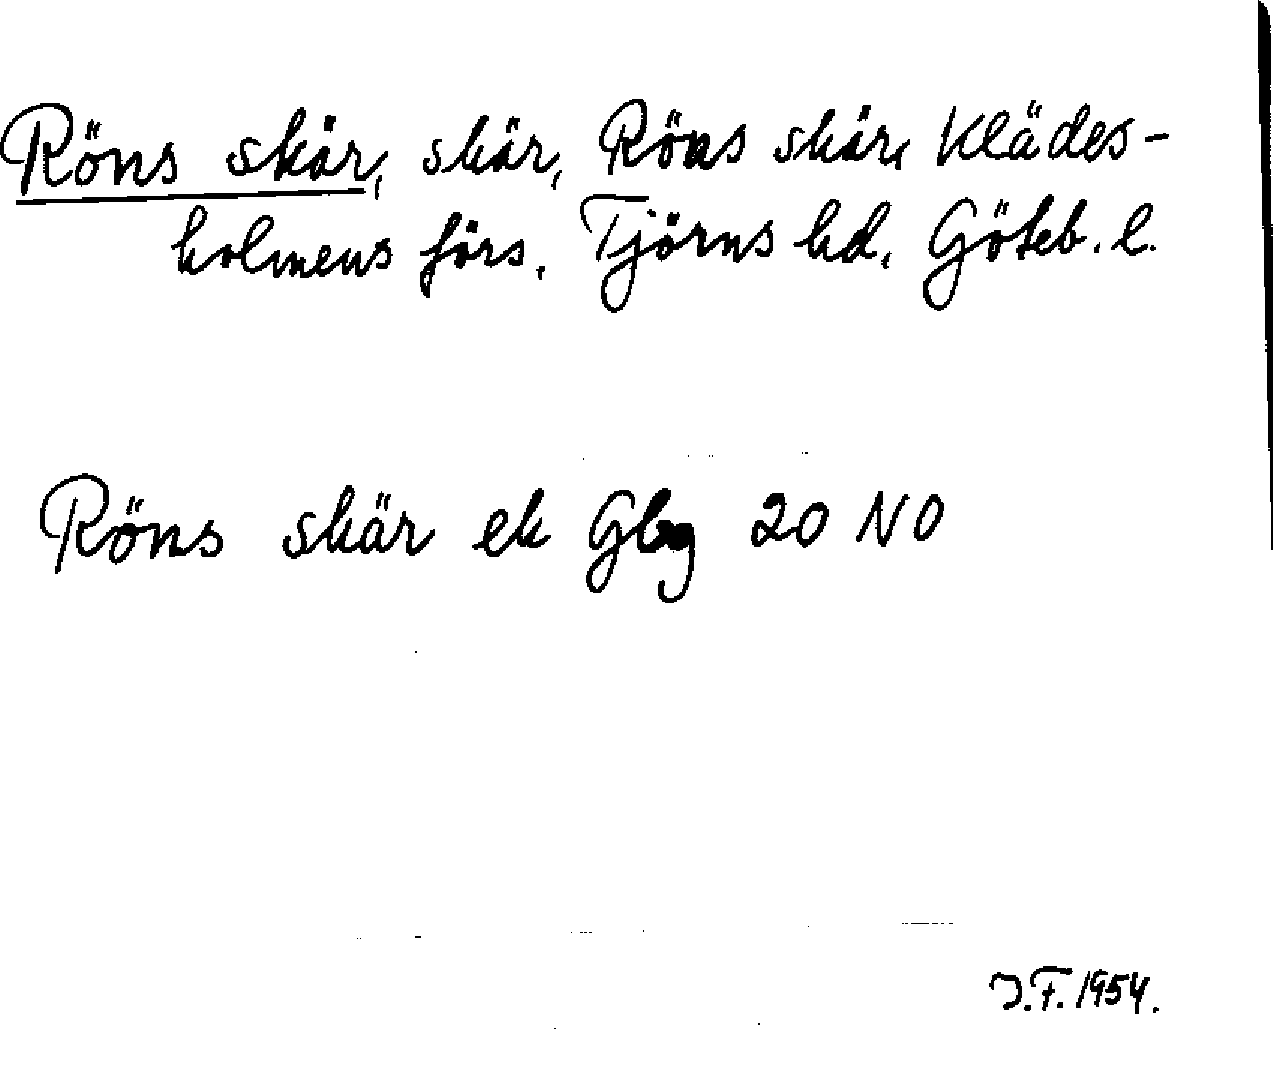 Röns skär, skär, Röns skär, Klädes-
holmens förs., Tjörns hd, Göteb. l.
Röns skär ek Gbg 20 NO
J.F. 1954.